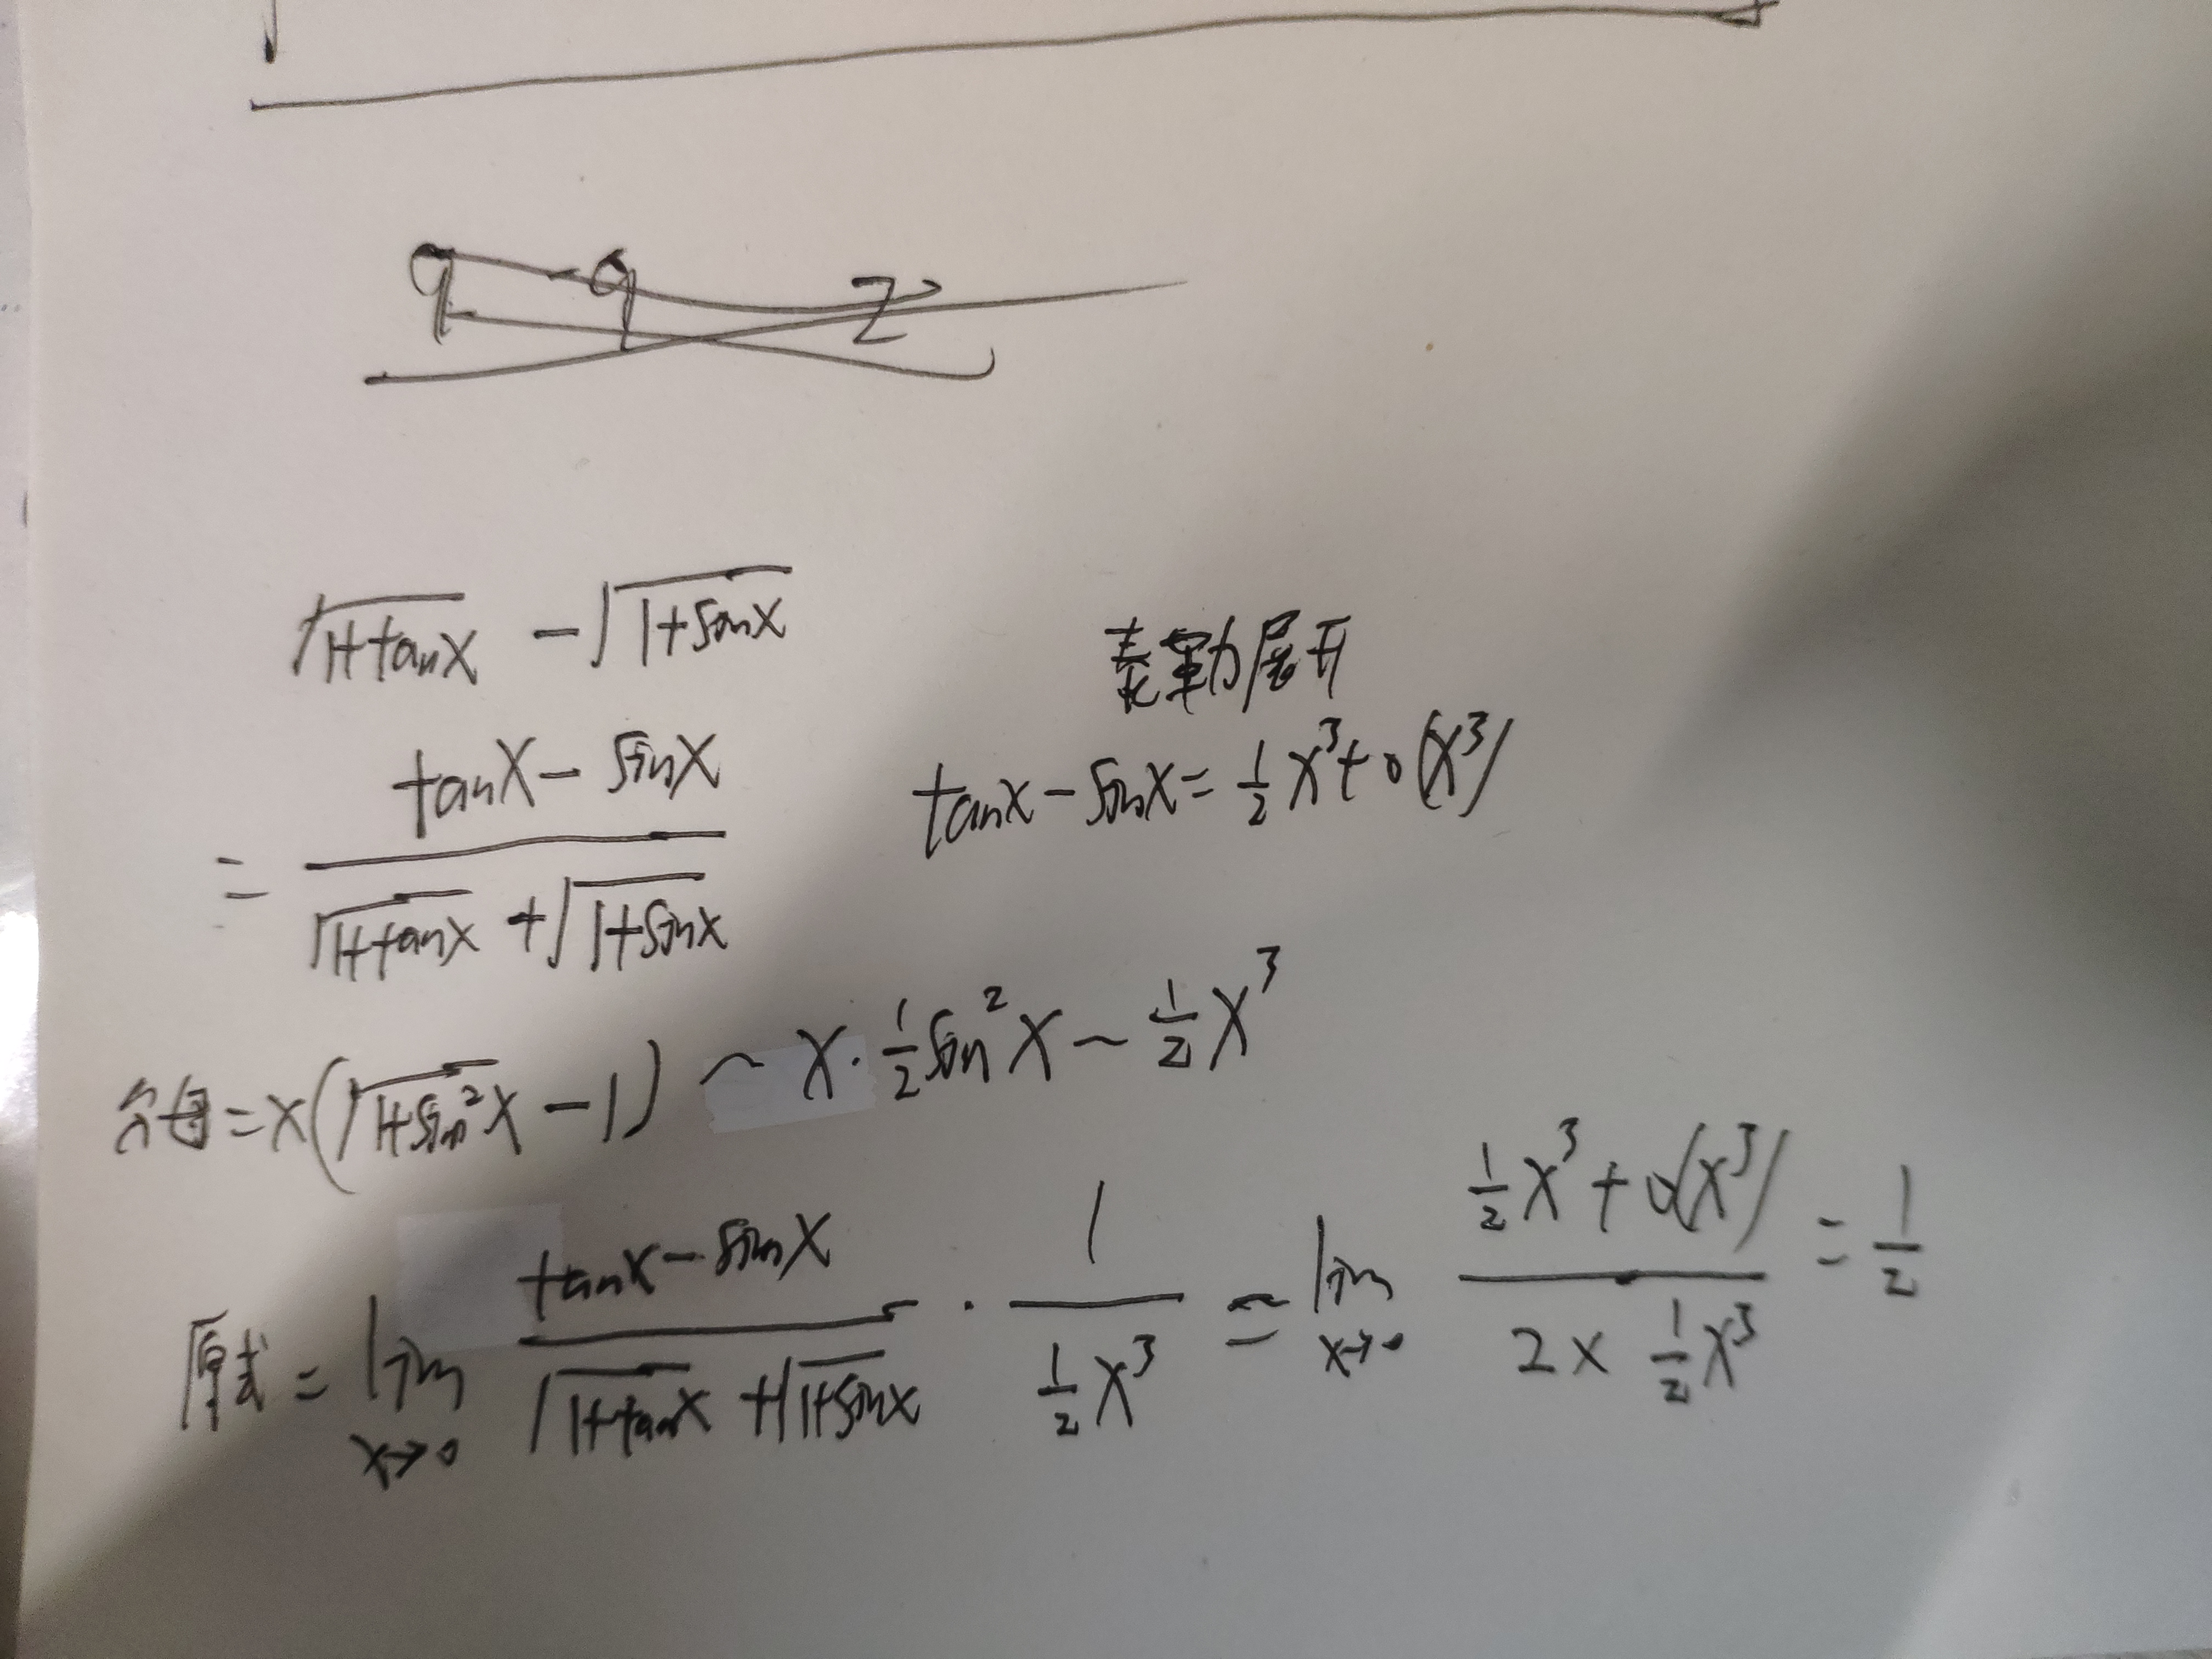 9 9 2
√(1+tanx) - √(1+sinx)
泰勒展开
= (tanx - sinx) / (√(1+tanx) + √(1+sinx))
tanx - sinx = 1/2 x³ + o(x³)
分母 = x(√(1+sin²x) - 1) ~ x · 1/2 sin²x ~ 1/2 x³
原式 = lim x→0 (tanx - sinx) / (√(1+tanx) + √(1+sinx)) · 1 / (1/2 x³) = lim x→0 (1/2 x³ + o(x³)) / (2 × 1/2 x³) = 1/2